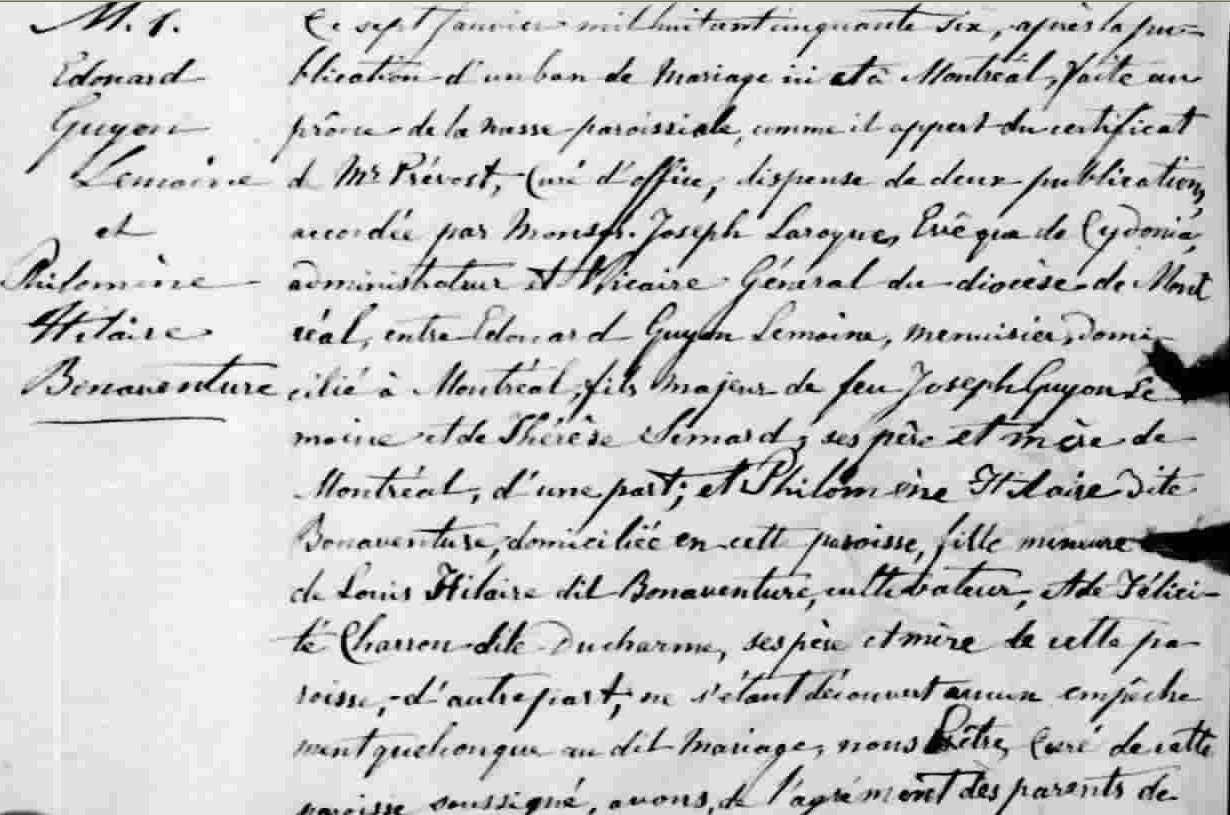 M. 1.
Edouard
Guyon
Lemoine
et
Philomène
Hilaire
Bonaventure
Ce sept Janvier mil huit cent cinquante six, après la pu-
blication d'un ban de Mariage ici et à Montréal, faite au
prône de la messe paroissiale, comme il appert du certificat
de Mr Prévost, Curé d'office, dispense de deux publications,
accordée par Monsgr. Joseph Laroque, Evêque de Cydonia,
administrateur et Vicaire Général du diocèse de Mont
réal, entre Edouard Guyon Lemoine, menuisier, domi-
cilié à Montréal, fils majeur de feu Joseph Guyon Le
moine et de Thérèse Simard, ses père et mère de
Montréal, d'une part; et Philomène Hilaire dite
Bonaventure, domiciliée en cette paroisse, fille mineure
de Louis Hilaire dit Bonaventure, cultivateur, et de Félici-
té Charron dite Ducharme, ses père et mère de cette pa
roisse, d'autre part; ne s'étant découvert aucun empêche
ment quelconque au dit Mariage, nous Prêtre, Curé de cette
paroisse soussigné, avons, de l'agrément des parents de